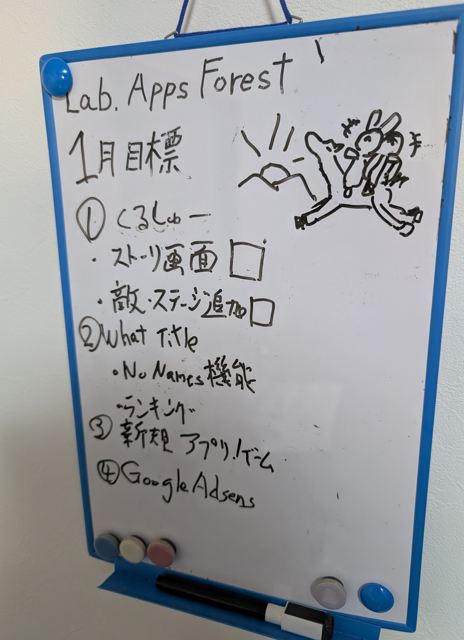 Lab. Apps Forest
1月目標
① くるしゅー
・ストーリ画面 □
・敵・ステージ追加 □
② What Title
・No Names機能
・ランキング
③ 新規 アプリ/ゲーム
④ Google Adsens